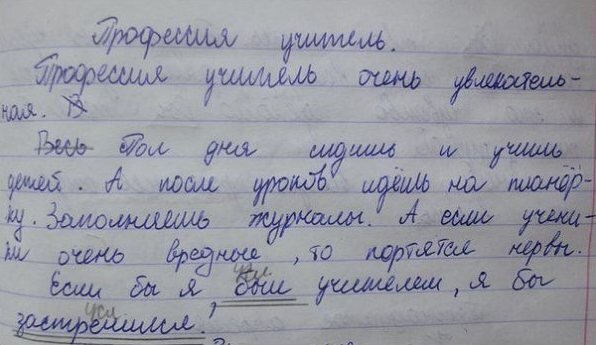 Профессия учитель.
Профессия учитель очень увлекатель-
ная. В
Весь Пол дня сидишь и учишь
детей. А после уроков идёшь на планёр-
ку. Заполняешь журналы. А если учени-
ки очень вредные, то портятся нервы.
Если бы я, был учителем, я бы
застрелился.